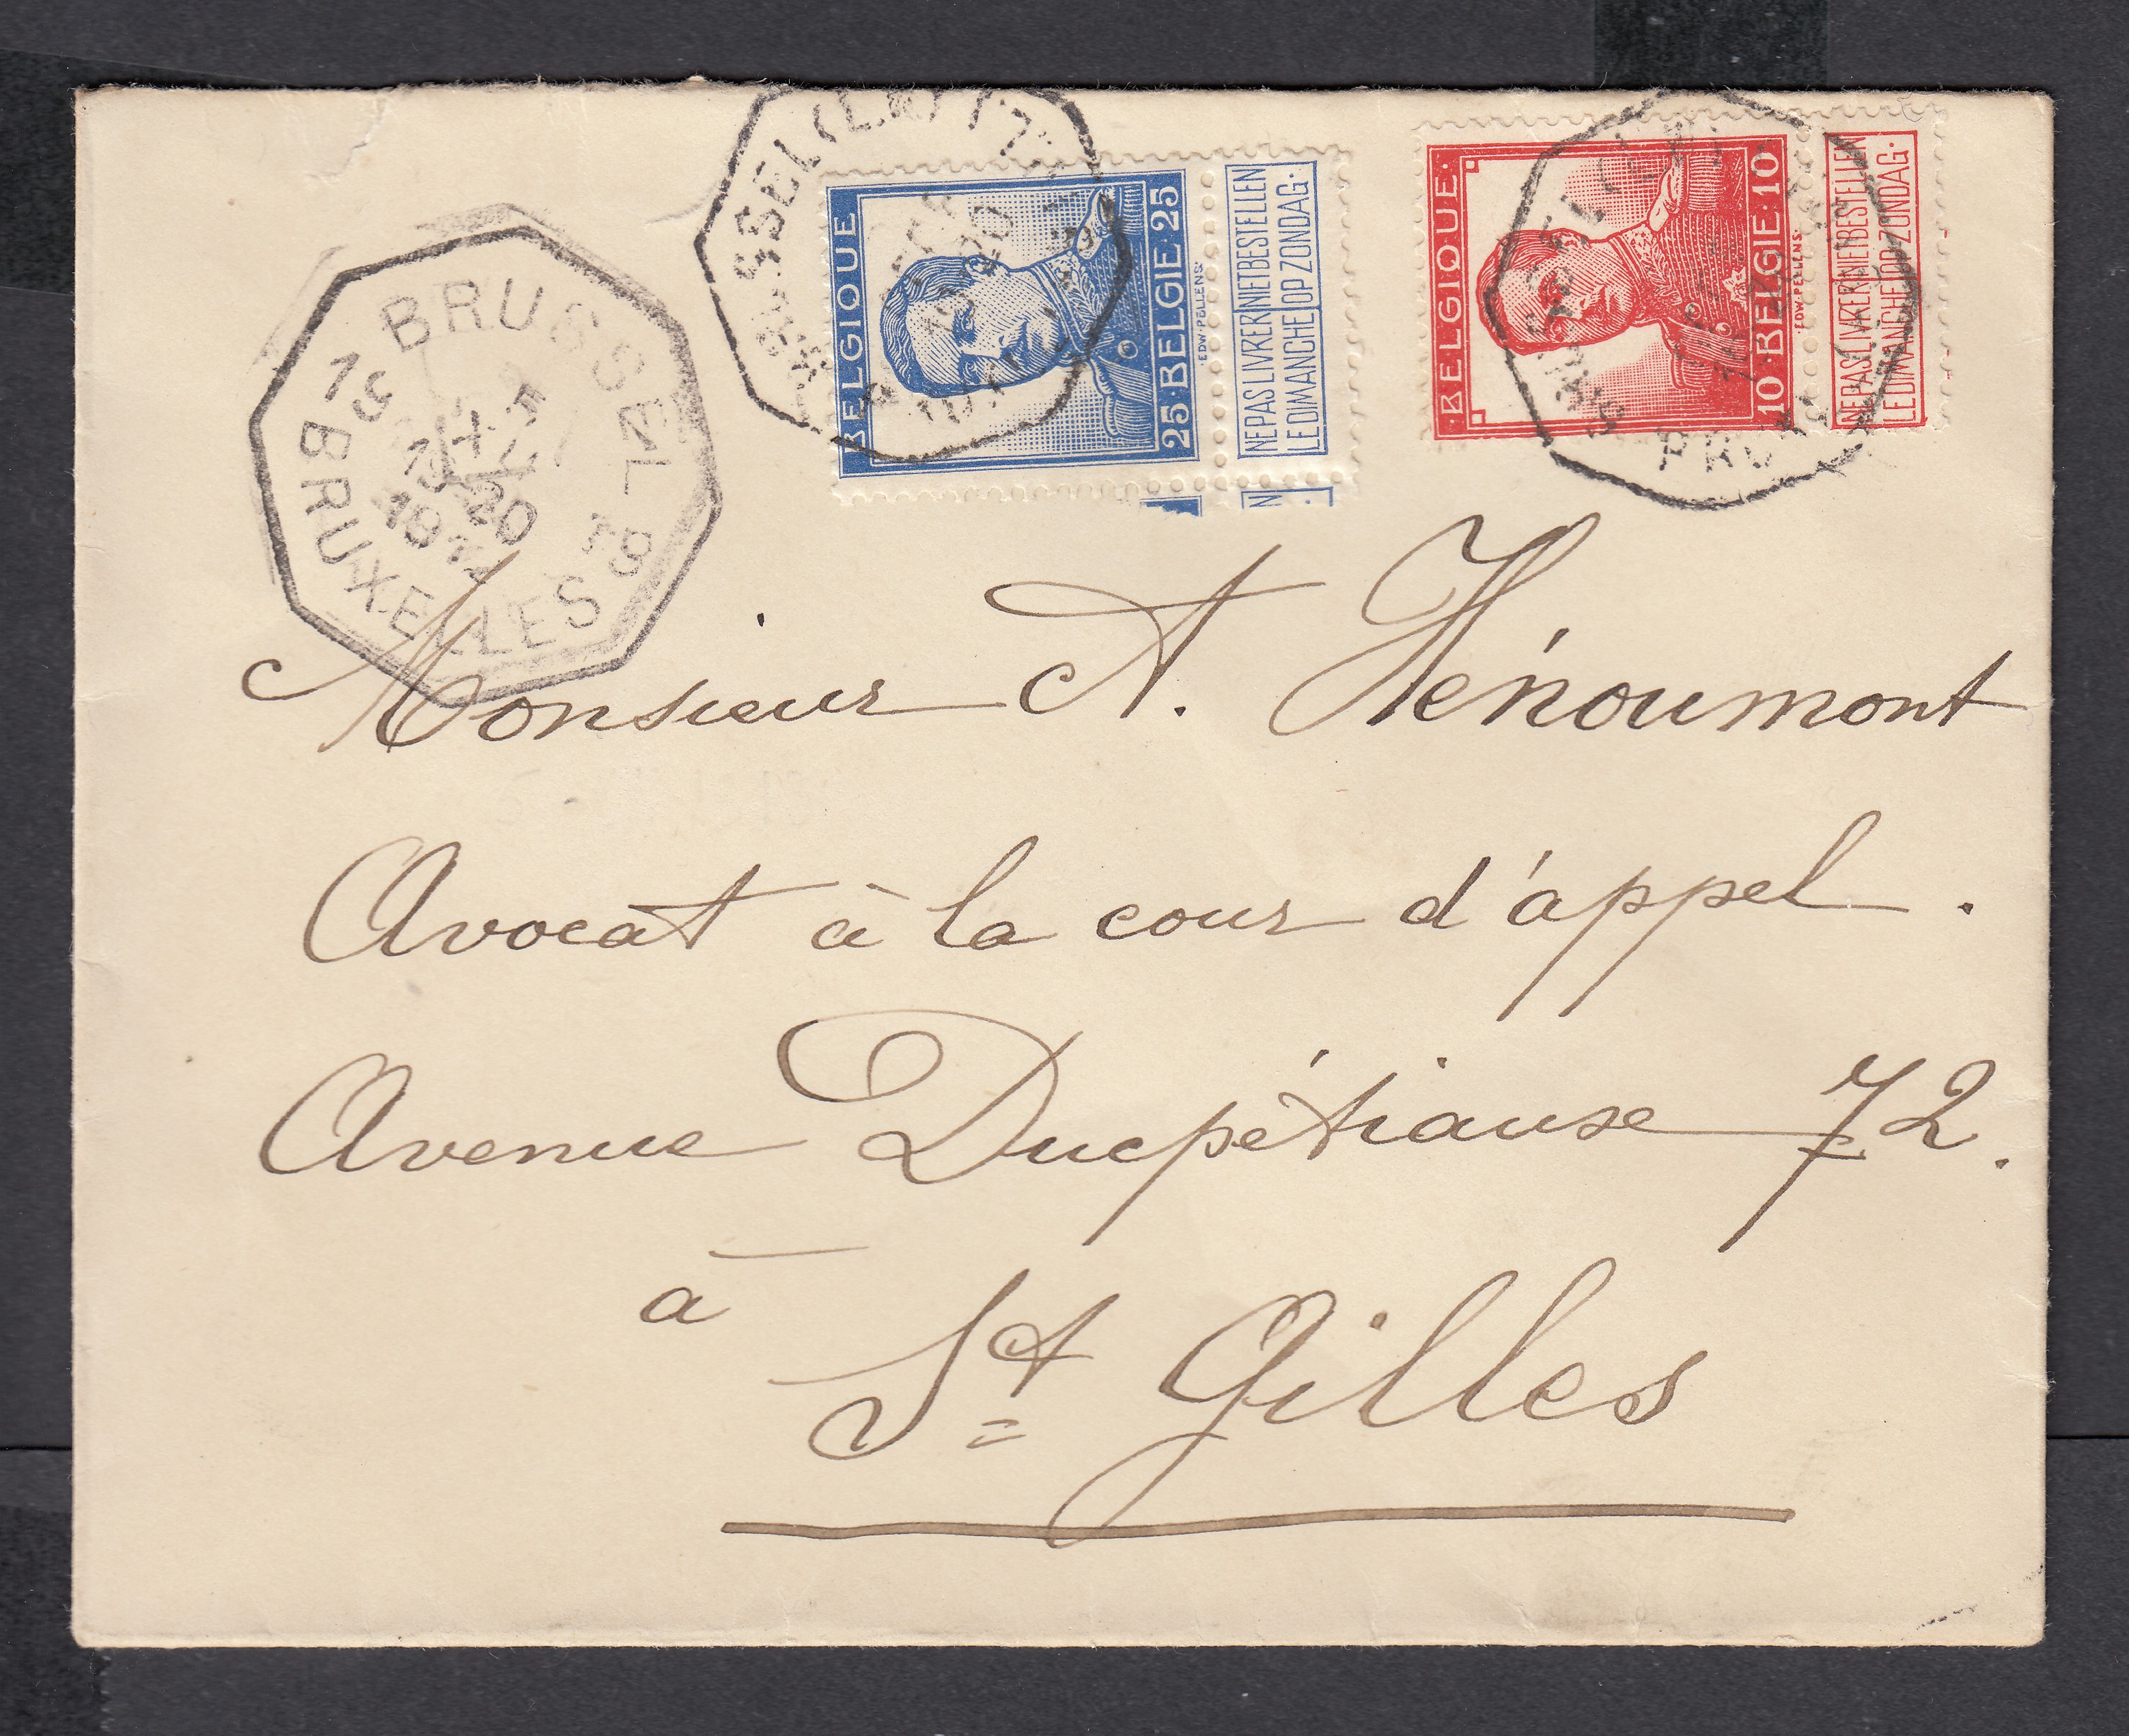 BRUSSEL
BRUXELLES
BELGIQUE
25·BELGIE·25
·EDW·PELLENS·
NE PAS LIVRER NIET BESTELLEN
LE DIMANCHE OP ZONDAG·
·BELGIQUE·
10·BELGIE·10
·EDW·PELLENS·
NE PAS LIVRER NIET BESTELLEN
LE DIMANCHE OP ZONDAG·
Monsieur A. Hénoumont
Avocat à la cour d'appel.
Avenue Ducpétiause 72.
à
St Gilles